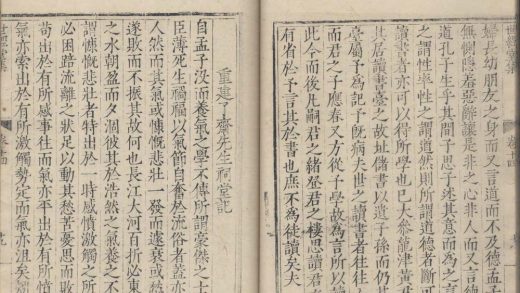 婦長幼朋友之身而又言道而不及德孟子
無惻隱羞惡辭讓是非之心非人而又言
道孔子生乎其間子思子述其意而為之言
之謂性率性之謂道然則所謂道德者斷可
讀書者亦可以得所學也已大參龍津黃君
其居讀書臺之故址儲書以遺子孫而仍其
堂屬予為記予既病夫世之讀書者往往
而君之子應春又方從子學故為言所以讀
此今而後凡嗣君之緒登君之樓思讀君
有省於予言其於書也庶不為徒讀矣夫
重建了齋先生祠堂記
自孟子沒而養氣之學不傳所謂豪傑之士
臣薄死生禍福以氣節自奮於流俗者蓋亦
人然而其氣或慷慨悲壯一發而遂衰或愁
遂敗而不振其故何也長江大河百折必東
之水朝盈而夕涸彼其於浩然之氣養之不
謂慷慨悲壯者特出於一時感憤激觸之所
必困踣流離之狀足以動其愁苦憂思而敗
苟出於有所感事往而氣亦平出於有所憤
氣亦索出於有所激觸勢定而氣亦沮矣曷